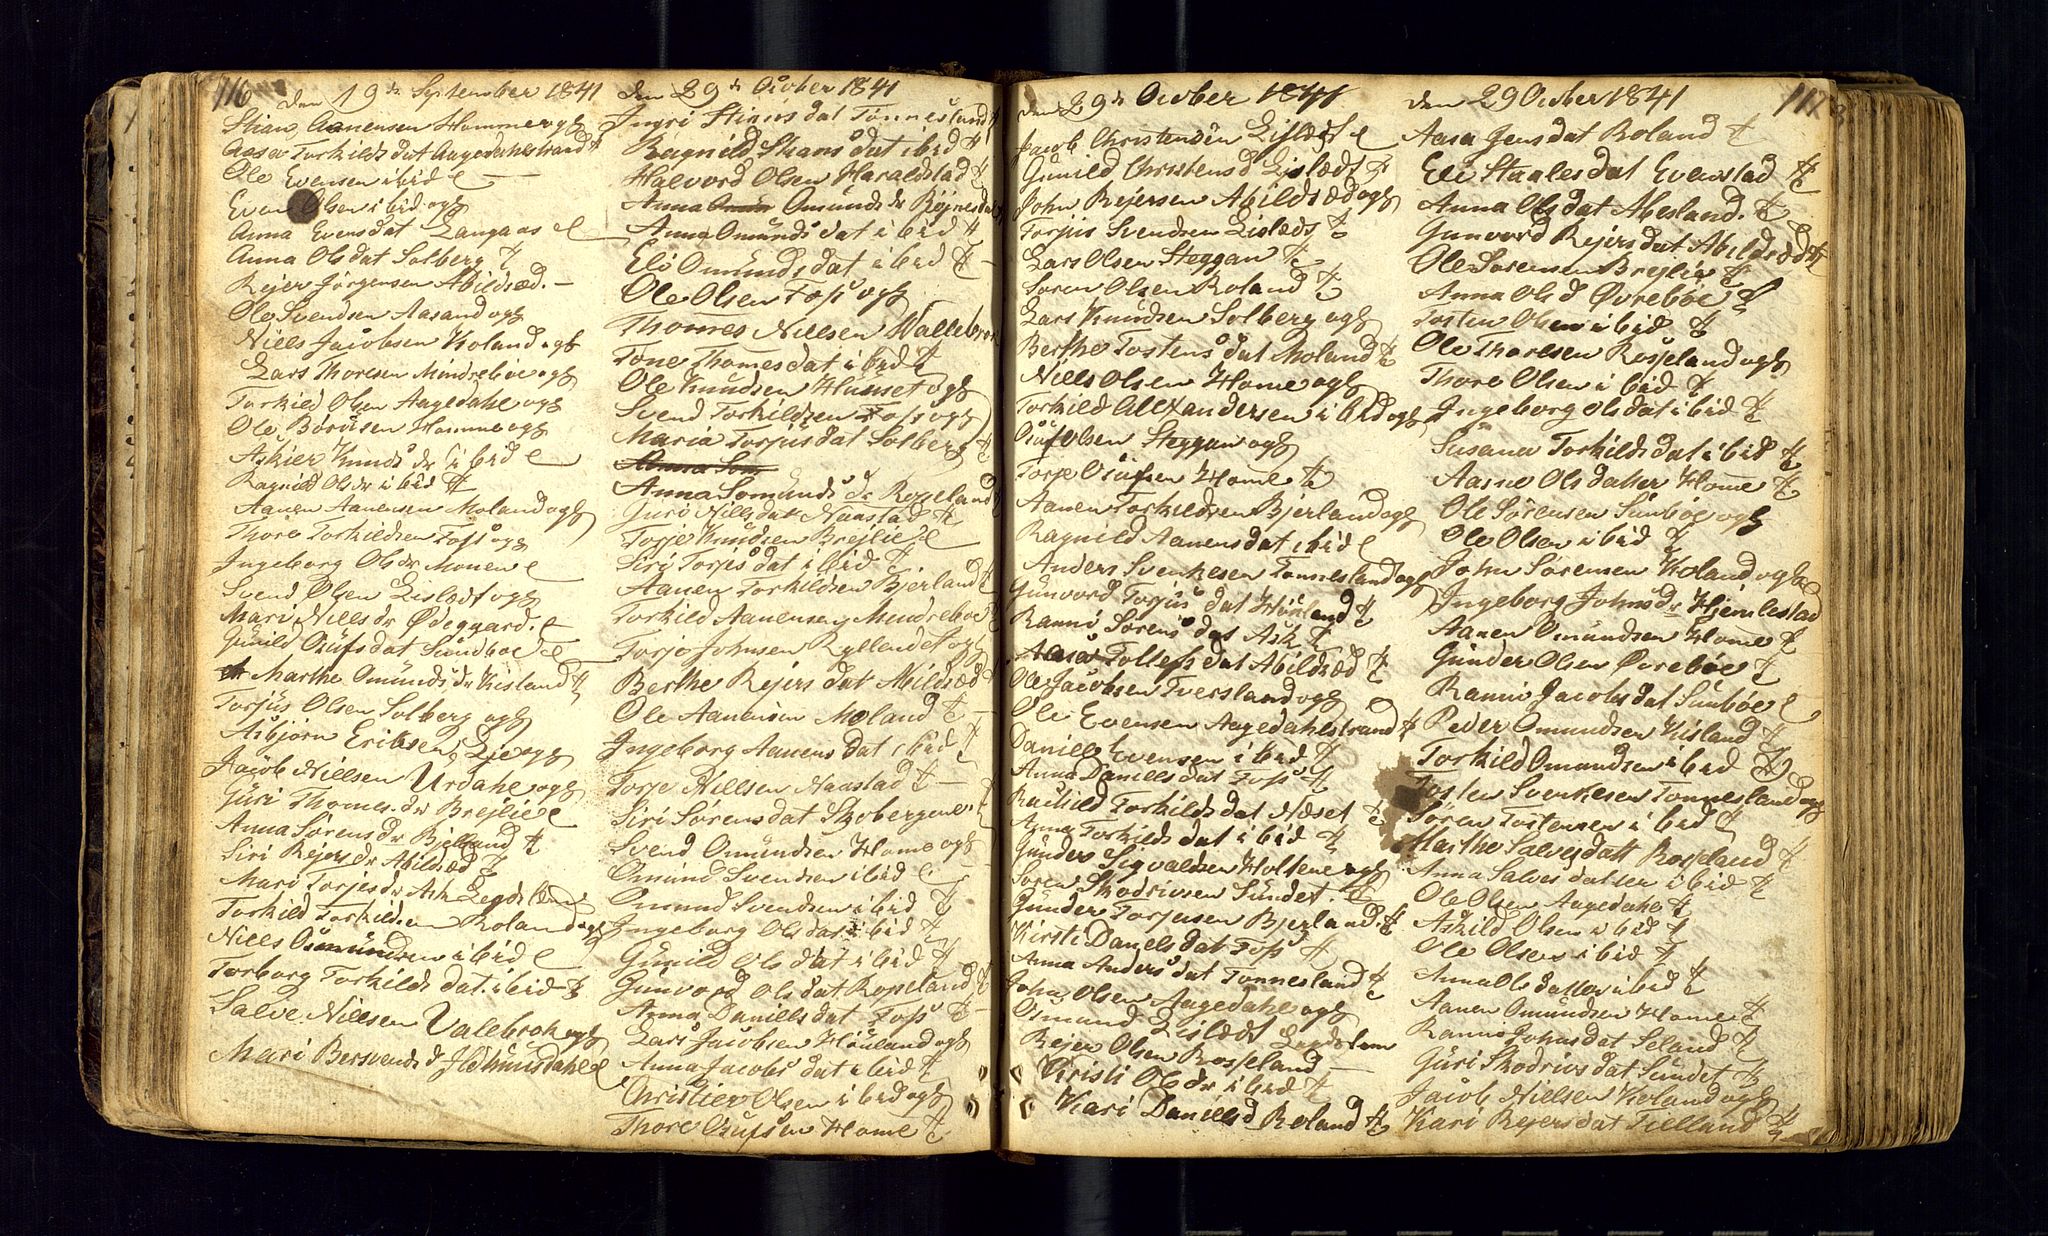 116
den 19de September 1841
Stian Aanensen Homme ogs
Aasa Torkilds dat Aagedahlstrand
Ole Evensen ibid
Even Olsen ibid ogs
Anna Evensdat Langaas
Anna Olsdat Solberg
Rejer Jørgensen Abildsæd.
Ole Svendsen Aasand ogs
Niels Jacobsen Koland ogs
Lars Thoresen Mindreboe ogs
Torkild Olsen Aagedahl ogs
Ole Homme ogs
Knuds dr ibid
Ragnild Ols dr ibid
Aanen Aanensen Moland ogs
Thore Torkildsen Foss ogs
Ingeborg Ols dr Monen
Svend Olsen Lislædt ogs
Mari Niells dr Ødegaard.
Gunild Olufs dat Sundboe
Marthe Omunds dr Kisland
Torjus Olsen Solberg ogs
Asbjørn Eriksen Lie ogs
Jacob Nielsen Urdahl ogs
Guri Thomes dr Brejlie
Anna Sørens dr Bjelland
Siri Rejers dr Abildsæd
Mari Torjes dr Ask Legdslem
Torkild Torkildsen Roland ogs
Niels Osmundsen ibid
Torborg Torkilds dat ibid
Salve Nielsen Valebrok ogs
Mari Bersvends d
den 29de October 1841
Ingri Stians dat Tonnesland
Ragnild Stians dat ibid
Halvord Olsen Haraldstad
Anna Omunds dr Røjnesdal
Anna Omunds dat ibid
Eli Omunds dat ibid
Ole Olsen Foss ogs
Thomes Nielsen Wallebrok
Tone Thomes dat ibid
Ole Knudsen Hunset ogs
Svend Torkildsen Foss ogs
Maria Torjus dat Solberg
Anna Som
Anna Somunds dr Rosseland
Guri Niels dat Naastad
Torje Knudsen Brejlie
Siri Torjes dat ibid
Aanen Torkildsen Bjerland
Torkild Aanensen Mindreboe
Torjo Johnsen Kyllandst ogs
Berthe Rejers dat Abildsæd
Ole Aanensen Moland
Ingeborg Aanens dat ibid
Torje Nielsen Naastad
Siri Sørens dat Skobergene
Svend Omundsen Home ogs
Omund Svendsen ibid
Omund Svendsen ibid
Ingeborg Ols dat ibid
Gunild Ols dat ibid
Gunvord Ols dat Rosseland
Anna Daniells dat Foss
Lars Jacobsen Houland ogs
Anna Jacobs dat ibid
Christier Olsen ibid ogs
Thore Olufsen Home
den 29de October 1841
Jacob Christensen Lislædt
Gunild Christens d Lislædt
John Rejersen Abildsæd ogs
Torjus Svendsen Lislædt
Lars Olsen Steggan
Søren Olsen Roland
Lars Knudsen Solberg ogs
Berthe Tostens dat Moland
Niels Olsen Home ogs
Torkild Allexandersen ibid ogs
Oluf Olsen Steggan ogs
Torje Olufsen Home
Aanen Torkildsen Bjerland ogs
Ragnild Aanens dat ibid
Anders Svenkesen Tonnesland ogs
Gunvord Torjus dat Houland
Ranni Sørens dat Ask
Aasa Tollefs dat Abildsæd
Ole Jacobsen Tversland ogs
Ole Evensen Aagedahlstrand
Daniell Evensen ibid
Anna Daniells dat Foss
Rachild Torkilds dat Næset
Anna Torkilds dat ibid
Gunder Sigvaldsen Holtene ogs
Søren Skodrivsen Sundet.
Gunder Torjusen Bjerland
Kirsti Daniels dat Foss
Anna Anders dat Tonnesland
John Olsen Aagedahl ogs
Osmund Lislædt Legdslem
Rejer Olsen Rosseland
Kristi Ols dr ibid
Kari Daniells d Roland
den 29 October 1841
117
Aasa Jens dat Roland
Eli Staales dat Evenstad
Anna Ols dat Abesland.
Gunvord Rejers dat Abildsæd
Ole Sorensen Brejlie
Anna Ols d Øvreboe
Tosten Olsen ibid
Ole Thoresen Rosseland ogs
Thore Olsen ibid
Ingeborg Ols dat ibid
Susana Torkilds dat ibid
Aasne Ols datter Home
Ole Sørensen Sunboe ogs
Ole Olsen ibid
John Sørensen Koland ogs
Ingeborg Johns dr Hjemlestad
Aanen Omundsen Home
Gunder Olsen Øvreboe
Ranni Jacobs dat Sunboe
Peder Omundsen Kisland
Torkild Omundsen ibid
Tosten Svenkesen Tonnesland ogs
Søren Tostensen ibid
Marthe Salves datt Rosseland
Anna Salves datter ibid
Ole Olsen Aagedahl
Askild Olsen ibid
Ole Olsen ibid
Anna Ols datter ibid
Aanen Omundsen Home
Ranni Johns dat Seland
Guri Skodrivs dat Sundet
Jacob Nielsen Koland ogs
Kari Rejers dat Tielland